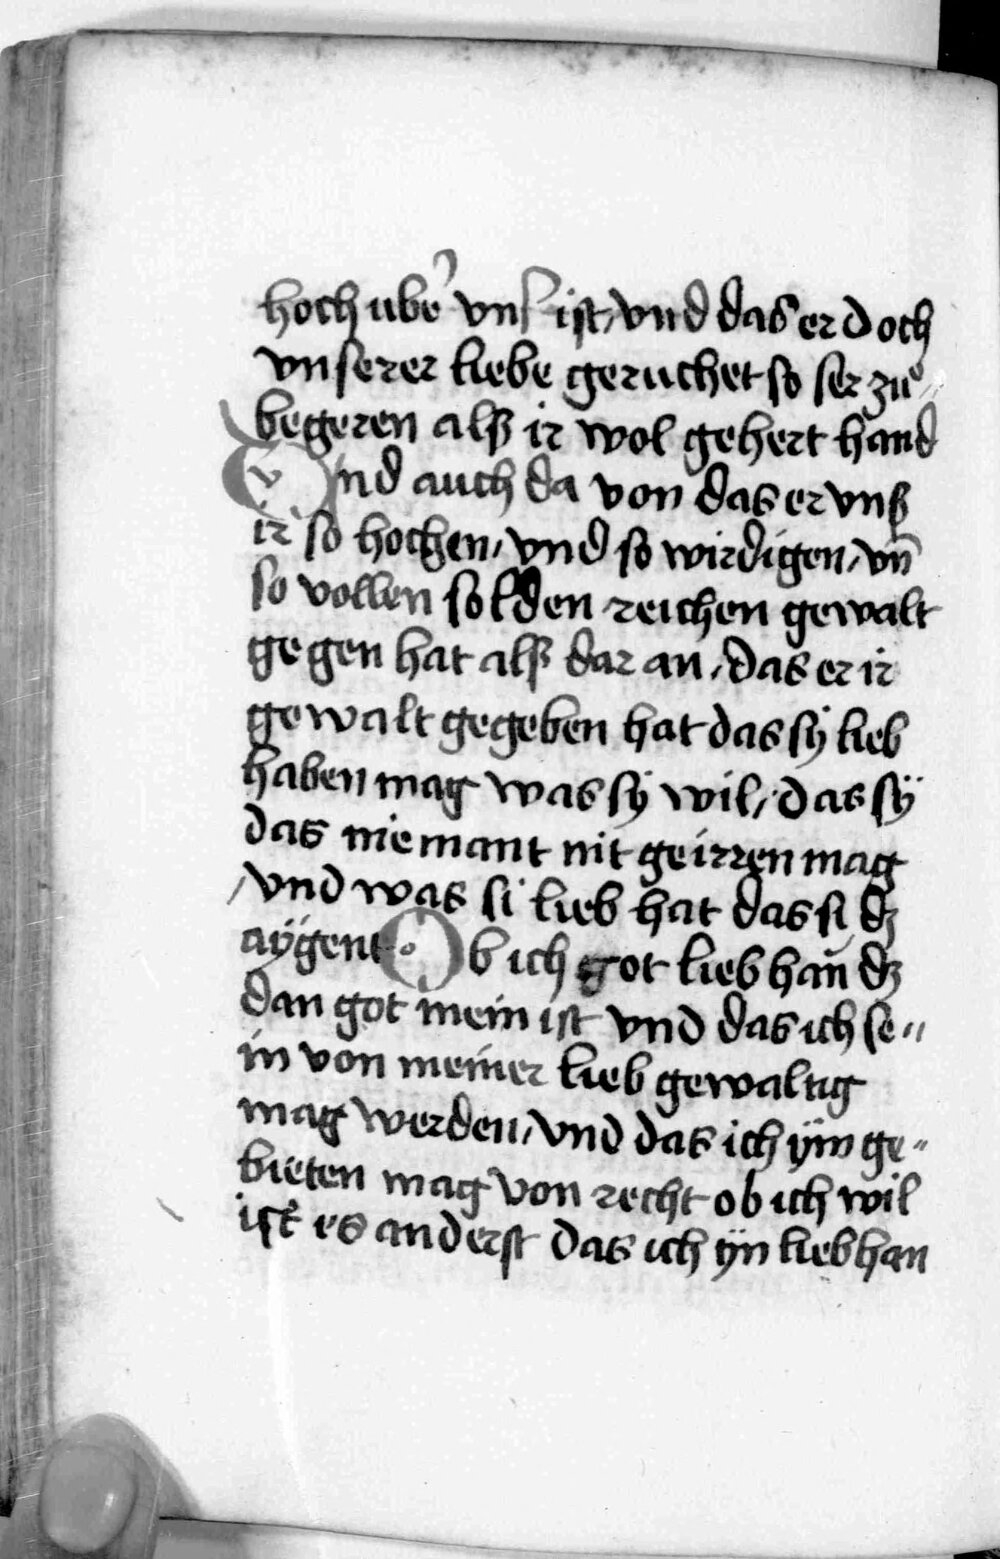 hoch ubeᷣ vnſ iſt / vnd das er doch
vnſerer liebe geruchet so ser zuͤ
begeren alſz ir wol gehert hand
Vnd auch da von das er vnſz
ir so hochen / vnd so wirdigen / vn̄
so vollen solden reichen gewalt
gegen hat alſz dar an / das er ir
gewalt gegeben hat das sÿ lieb
haben mag was sÿ wil / das sÿ
das niemant nit geirren mag
/ vnd was si lieb hat das si dʒ
aÿgent Ob ich got lieb han dʒ
dan got mein iſt vnd das ich se〃
in von meiner lieb gewaltig
mag werden / vnd das ich ÿm ge〃
bieten mag von recht ob ich wil
iſt es anderſt das ich ÿn lieb han